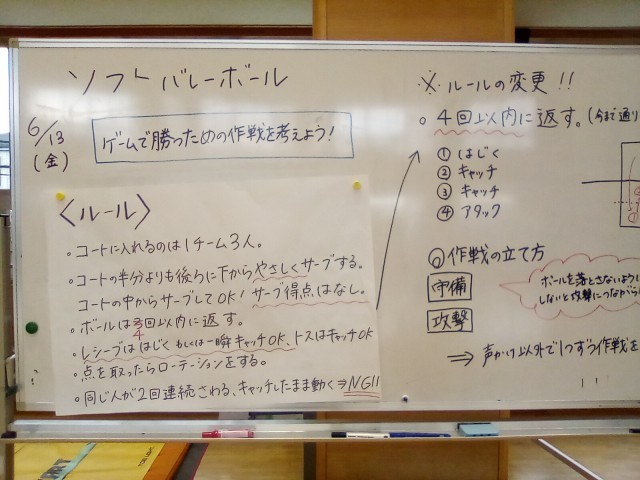 ソフトバレーボール
6/13
(金)
ゲームで勝つための作戦を考えよう!
〈ルール〉
・コートに入れるのは1チーム3人。
・コートの半分よりも後ろに下からやさしくサーブする。
コートの中からサーブしてOK! サーブ得点はなし。
・ボールは3回以内に返す。
4
・レシーブははじく もしくは一瞬キャッチOK、トスはキャッチOK
・点を取ったらローテーションをする。
・同じ人が2回連続さわる、キャッチしたまま動く⇒NG!!
※ルールの変更!!
○ 4回以内に返す。(今まで通り
① はじく
② キャッチ
③ キャッチ
④ アタック
◎作戦の立て方
守備
攻撃
ボールを落とさないように
しないと攻撃につながら
⇒ 声かけ以外で1つずつ作戦を